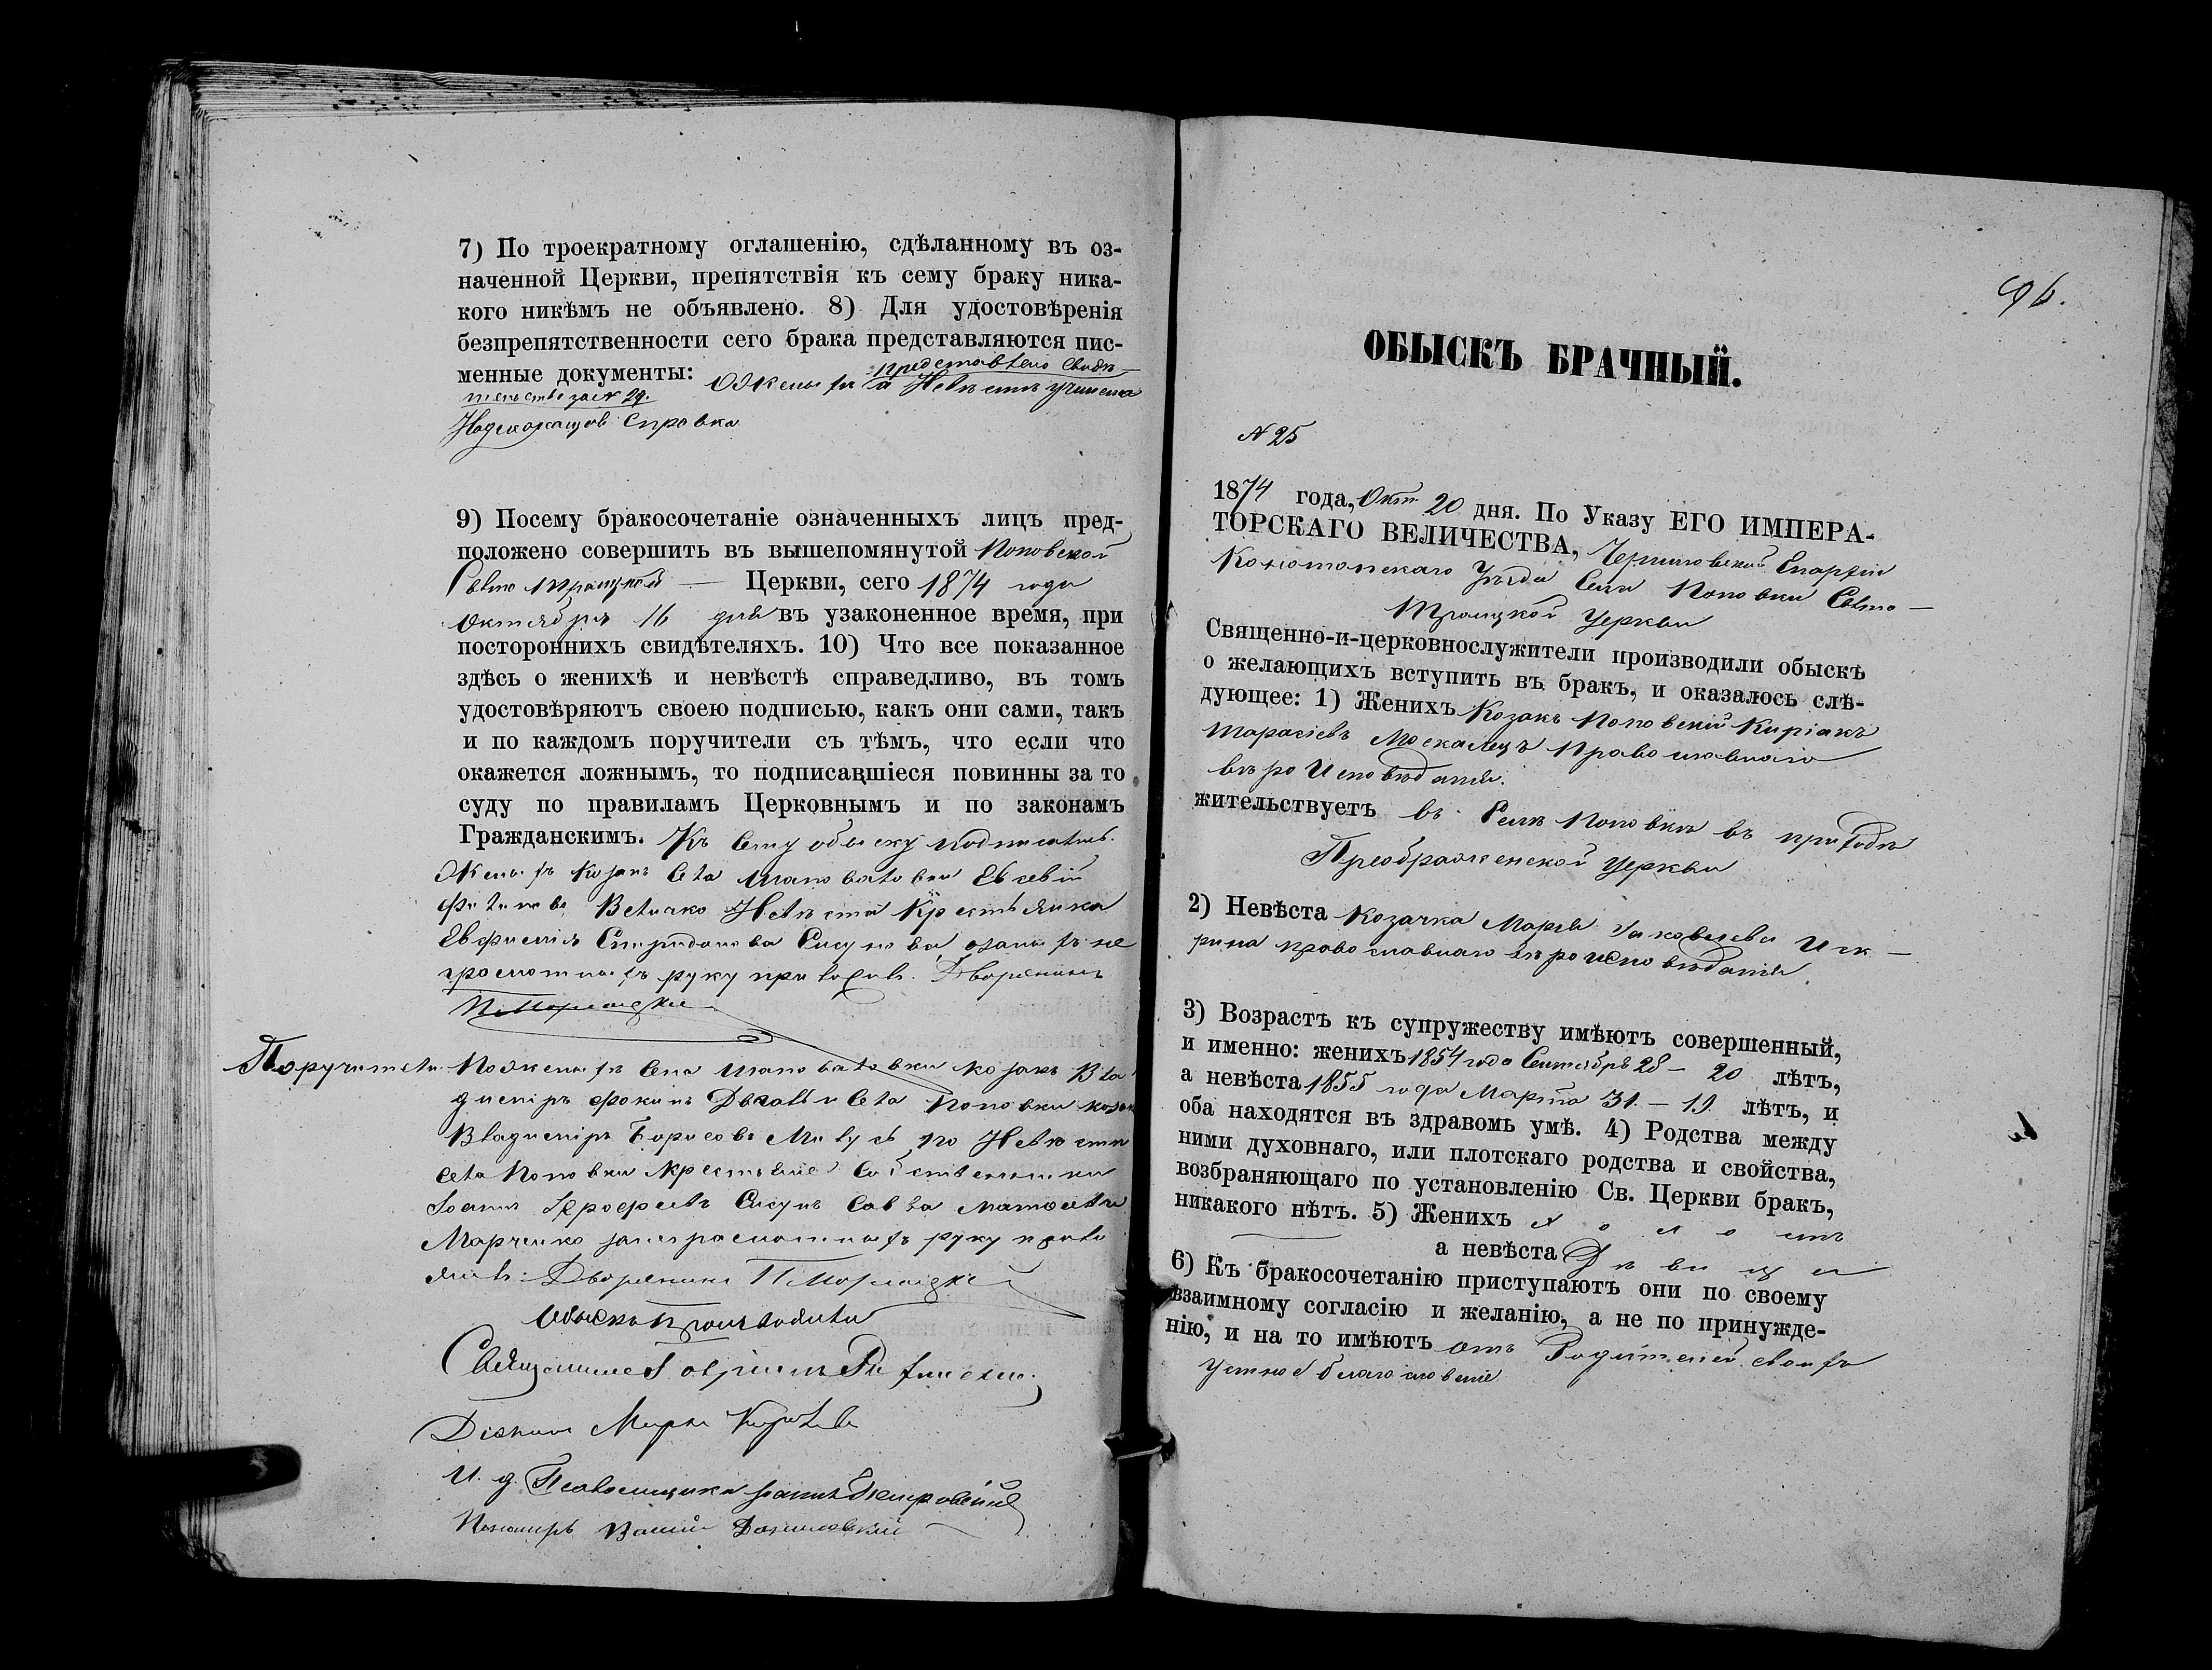 7) По троекратному оглашенію, сдѣланному въ оз-
наченной Церкви, препятствія къ сему браку ника-
кого никѣмъ не объявлено. 8) Для удостовѣренія
безпрепятственности сего брака представляются пис-
менные документы: О Женихѣ представлено Свидѣ-
тельство за № 29. а Невѣстѣ учинена
Надлежащая Справка
9) Посему бракосочетаніе означенныхъ лицъ пред-
положено совершить въ вышепомянутой Поповской
Свято Троицкой — Церкви, сего 1874 года
Октября 16 дня въ узаконенное время, при
постороннихъ свидѣтеляхъ. 10) Что все показанное
здѣсь о женихѣ и невѣстѣ справедливо, въ томъ
удостовѣряютъ своею подписью, какъ они сами, такъ
и по каждомъ поручители съ тѣмъ, что если что
окажется ложнымъ, то подписавшіеся повинны за то
суду по правиламъ Церковнымъ и по законамъ
Гражданскимъ. Къ Сему обыску подписались
Женихъ Козакъ Села Шаповаловки Евсевій
Величко Невѣста Крестьянка
Евфимія Спиридонова Сисунова, а за нихъ не
грамотныхъ руку приложилъ Дворянинъ
Поручители По Женихѣ Села Шаповаловки козакъ Вла
диміръ Фокинъ Села Поповки козакъ
Владиміръ Борисовъ по Невѣстѣ
села Поповки Крестьяне Собственники
Іоаннъ Сисунъ Савва
Марченко за неграмотныхъ руку прило
жилъ Дворянинъ
Обыскъ Производили
Священникъ
Діаконъ Маркъ
И. д. Псаломщика Іоаннъ
Пономарь
96.
ОБЫСКЪ БРАЧНЫЙ.
№ 25
1874 года, Окт. 20 дня. По Указу ЕГО ИМПЕРА-
ТОРСКАГО ВЕЛИЧЕСТВА, Черниговской Епархіи
Конотопскаго Уѣзда Села Поповки Свято —
Троицкой Церкви
Священно-и-церковнослужители производили обыскъ
о желающихъ вступить въ бракъ, и оказалось слѣ-
дующее: 1) Женихъ Козакъ Поповскій Киріакъ
Тарасіевъ Москалецъ Православнаго
вѣроисповѣданія.
жительствуетъ въ Селѣ Поповкѣ въ приходѣ
Преображенской Церкви
2) Невѣста Козачка Марія Іаковлева Иск —
рина православнаго вѣроисповѣданія
3) Возрастъ къ супружеству имѣютъ совершенный,
и именно: женихъ 1854 года Сентября 28 — 20 лѣтъ,
а невѣста 1855 года Марта 31. — 19. лѣтъ, и
оба находятся въ здравомъ умѣ. 4) Родства между
ними духовнаго, или плотскаго родства и свойства,
возбраняющаго по установленію Св. Церкви бракъ,
никакого нѣтъ. 5) Женихъ холостъ
а невѣста Дѣвица
6) Къ бракосочетанію приступаютъ они по своему
взаимному согласію и желанію, а не по принужде-
нію, и на то имѣютъ отъ Родителей своихъ
устное благословеніе